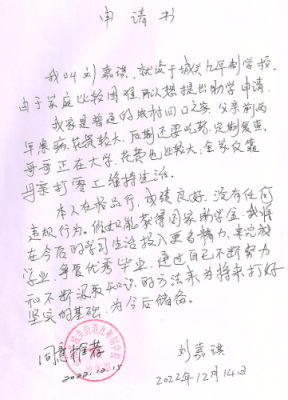 申请书
我叫刘嘉琪，就读于城关九年制学校，
由于家庭比较困难，所以想提出助学申请。
我家是普通的农村四口之家，父亲前两
年患病，花费较大，后期还要吃药，定期复查，
哥哥正在大学，花费也比较大，全家仅靠
母亲打零工维持生活。
本人在校品行、成绩良好，没有任何
违规行为。假如能获得国家助学金，我将
在今后的学习生活投入更多精力，来完成
学业，争取优秀毕业，通过自己不断努力
和不断汲取知识，的方法来为将来打好
坚实的基础，为今后储备。
同意推荐
2022.12.15
刘嘉琪
2022年12月14日